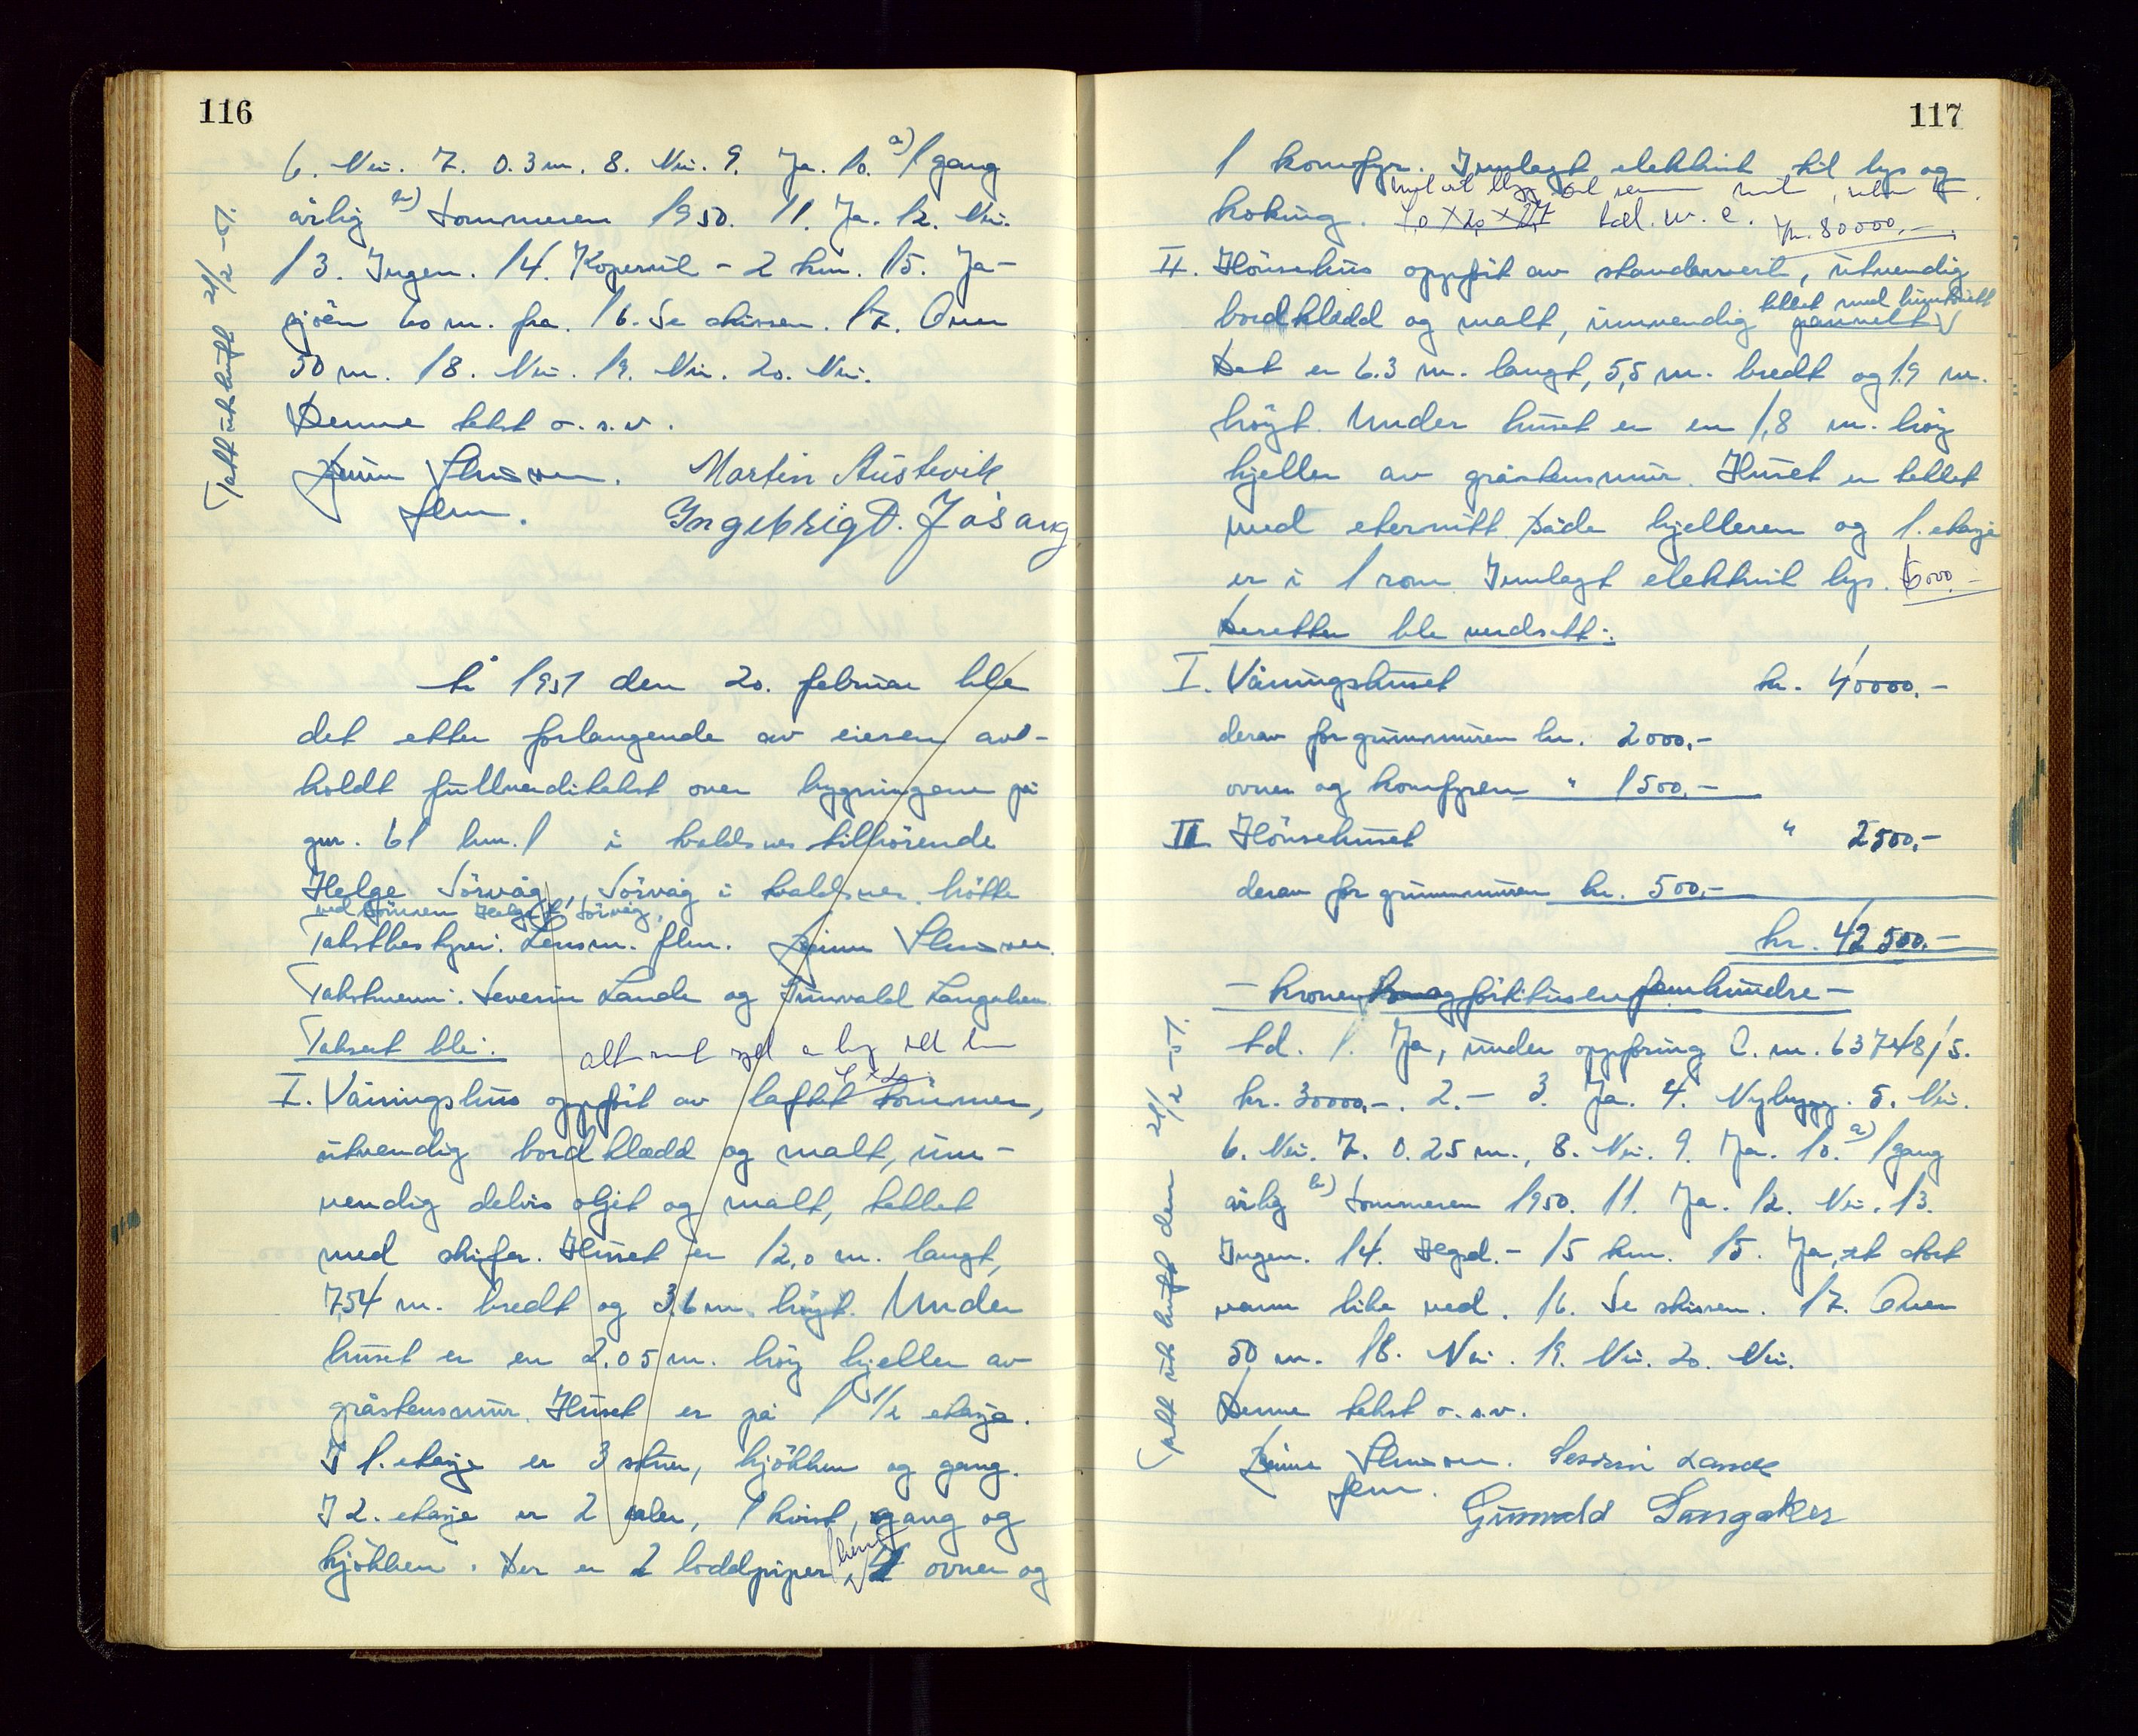 116
6. Nei. 7. 0.3 m. 8. Nei. 9. Ja. 10. a) 1 gang
årlig b) Sommeren 1950. 11. Ja. 12. Nei.
13. Ingen. 14. Kopervik - 2 km. 15. Ja -
sjøen 60 m. fra. 16. Se skissen. 17. Over
50 m. 18. Nei. 19. Nei. 20. Nei.
Denne takst o.s.v.
Martin Austevik
flm. Ingebrigt. Jøsang
Tatt utskrift 21/2 -51.
År 1951 den 20. februar ble
det etter forlangende av eieren av-
holdt fullverditakst over bygningene på
gnr. 61 bnr. 1 i Avaldsnes tilhørende
Helge Sörvåg, Sörvåg i Avaldsnes. Møtte
ved sønnen Helge Sörvåg,
Takstbestyrer: Lensm. flm.
Takstmenn: Severin Lande og Gunvald Langaker.
Taksert ble:
I. Våningshus oppført av laftet tömmer,
utvendig bordkledd og malt, inn-
vendig delvis oljet og malt, tekket
med skifer. Huset er 12,0 m. langt,
7,54 m. bredt og 3,6 m. høyt. Under
huset er en 2.05 m. høy kjeller av
gråstensmur. Huset er på 1 1/2 etasje.
I 1. etasje er 3 stuer, kjökken og gang.
I 2. etasje er 2 saler, 1 kvist, gang og
kjökken. Der er 2 loddpiper, 4 ovner og
117
1 komfyr. Innlagt elektrisk til lys og
koking. kr. 80000,-
II. Hönsehus oppført av stenderverk, utvendig
bordkledd og malt, innvendig panelt tettet med huntonitt
Det er 6.3 m. langt, 5,5 m. bredt og 1.9 m.
høyt. Under huset er en 1,8 m. høy
kjeller av gråstensmur. Huset er tekket
med eternitt. Både kjelleren og 1. etasje
er i 1 rom. Innlagt elektrisk lys. 6000.-
Deretter ble verdsatt:
I. Våningshuset kr. 40000.-
derav for grunnmuren kr. 2000,-
ovner og komfyren " 1500,-
II. Hönsehuset " 2500,-
derav for grunnmuren kr. 500,-
kr. 42500.-
- kroner og förtitusen femhundre -
td. 1. Ja, under oppföring C. nr. 63748/5.
kr. 30000,-. 2. - 3. Ja. 4. Nybygg. 5. Nei.
6. Nei. 7. 0.25 m., 8. Nei. 9. Ja. 10. a) 1 gang
årlig b) Sommeren 1950. 11. Ja. 12. Nei. 13.
Ingen. 14. Hgsd. - 15 km. 15. Ja, et stort
vann like ved. 16. Se skissen. 17. Over
50 m. 18. Nei. 19. Nei. 20. Nei.
Denne takst o.s.v.
Severin Lande
flm.
Gunvald Langaker
Tatt utskrift den 21/2 -51.